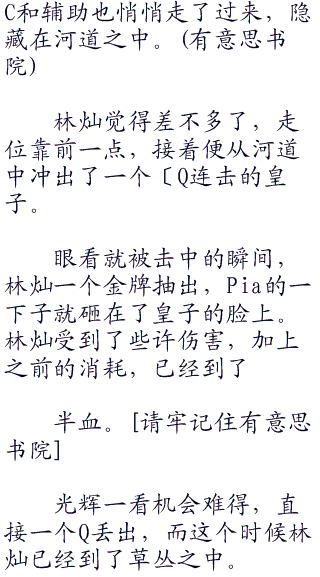 C和辅助也悄悄走了过来，隐
藏在河道之中。(有意思书
院)
林灿觉得差不多了，走
位靠前一点，接着便从河道
中冲出了一个〔Q连击的皇
子。
眼看就被击中的瞬间，
林灿一个金牌抽出，Pia的一
下子就砸在了皇子的脸上。
林灿受到了些许伤害，加上
之前的消耗，已经到了
半血。[请牢记住有意思
书院]
光辉一看机会难得，直
接一个Q丢出，而这个时候林
灿已经到了草丛之中。